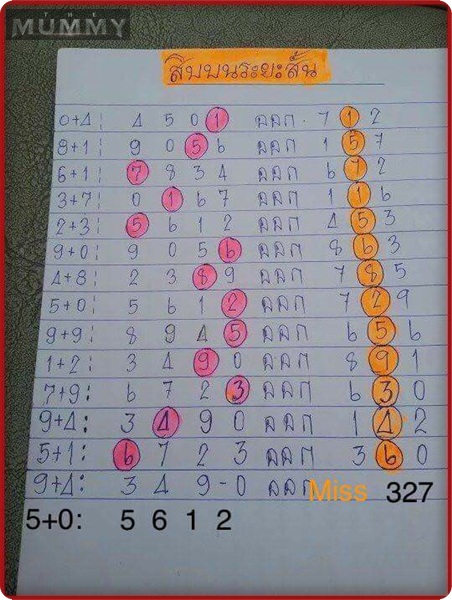 THE
MUMMY
สิบบนระยะสั้น
0+4: 4 5 0 1 ออก. 7 1 2
8+1: 9 0 5 6 ออก 1 5 7
6+1: 7 8 3 4 ออก 6 7 2
3+7: 0 1 6 7 ออก 1 1 6
2+3: 5 6 1 2 ออก 4 5 3
9+0: 9 0 5 6 ออก 8 6 3
4+8: 2 3 8 9 ออก 7 8 5
5+0: 5 6 1 2 ออก 7 2 9
9+9: 8 9 4 5 ออก 6 5 6
1+2: 3 4 9 0 ออก 8 9 1
7+9: 6 7 2 3 ออก 6 3 0
9+4: 3 4 9 0 ออก 1 4 2
5+1: 6 7 2 3 ออก 3 6 0
9+4: 3 4 9-0 ออก Miss 327
5+0: 5 6 1 2